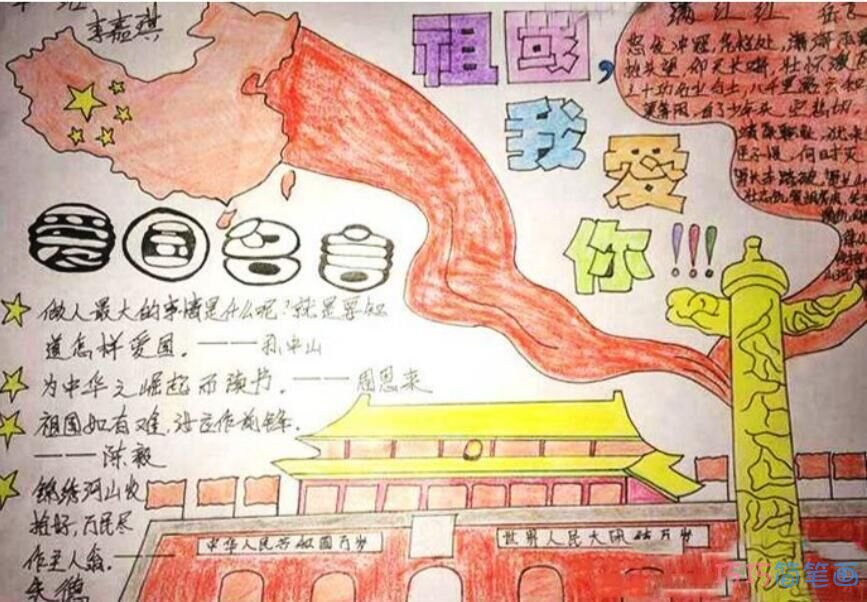 李嘉琪
祖国，
我爱
你!!!
满江红 岳飞
怒发冲冠，凭栏处，潇潇雨
抬头望，仰天长啸，壮怀激
三十功名尘与土，八千里路云和
莫等闲，白了少年头，空悲切
靖康耻
何时灭
爱国名言
做人最大的事情是什么呢？就是要知
道怎样爱国。——孙中山
为中华之崛起而读书。——周恩来
祖国如有难，汝应作前锋。
——陈毅
锦绣河山收
拾好，万民尽
作主人翁。——
朱德
中华人民共和国万岁
世界人民大团结万岁
巧巧简笔画